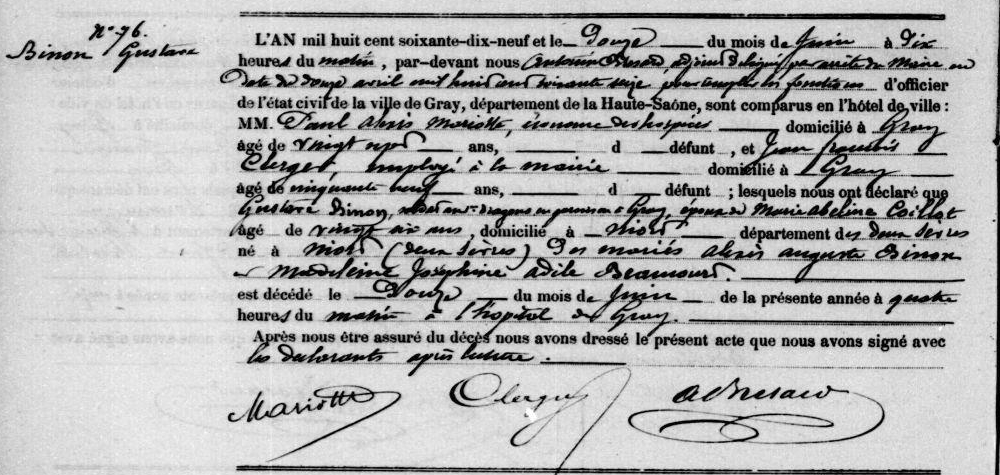 N° 96.
Binon Gustave
L'AN mil huit cent soixante-dix-neuf et le Douze du mois de Juin à Dix
heures du matin, par-devant nous Antoine Besard, adjoint délégué par arrêté du Maire en
Date du douze avril mil huit cent soixante seize pour remplir les fonctions d'officier
de l'état civil de la ville de Gray, département de la Haute-Saône, sont comparus en l'hôtel de ville :
MM. Paul Alexis Mariotte, économe des hospices domicilié à Gray
âgé de vingt sept ans, d défunt, et Jean François
Clerget, employé à la mairie domicilié à Gray
âgé de cinquante neuf ans, d défunt ; lesquels nous ont déclaré que
Gustave Binon, dragons en garnison à Gray, époux de Marie Abeline Caillat
âgé de vingt six ans, domicilié à Niort département des deux Sèvres
né à Niort (deux Sèvres) Des mariés Alexis Auguste Binon
et Madeleine Joséphine Adèle
est décédé le Douze du mois de Juin de la présente année à quatre
heures du matin à l'hôpital de Gray.
Après nous être assuré du décès nous avons dressé le présent acte que nous avons signé avec
les déclarants après lecture.
Mariotte Clerget